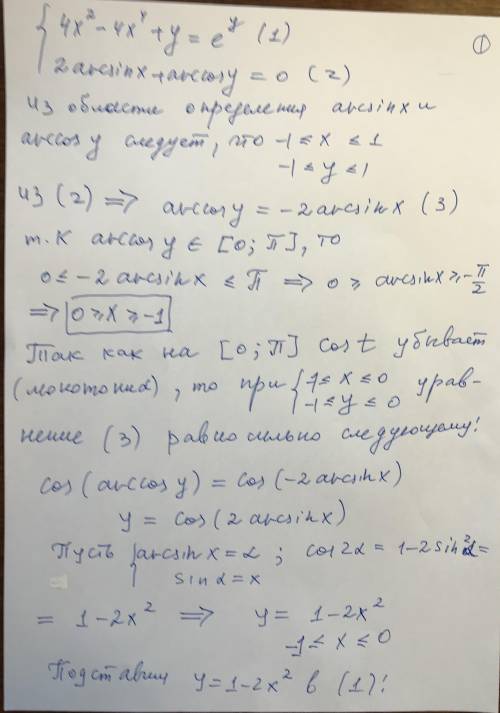 { 4x² - 4x⁴ + y = e^y (1)
2 arcsin x + arccos y = 0 (2)
①
из области определения arcsin x и
arccos y следует, что -1 ≤ x ≤ 1
-1 ≤ y ≤ 1
из (2) ⇒ arccos y = -2 arcsin x (3)
т.к arccos y ∈ [0; π], то
0 ≤ -2 arcsin x ≤ π ⇒ 0 ≥ arcsin x ≥ -π/2
⇒ 0 ≥ x ≥ -1
Так как на [0; π] cos t убывает
(монотонна), то при { -1 ≤ x ≤ 0 урав-
-1 ≤ y ≤ 0
нение (3) равносильно следующему:
cos(arccos y) = cos(-2 arcsin x)
y = cos(2 arcsin x)
Пусть { arcsin x = α ; cos 2α = 1 - 2 sin²α =
sin α = x
= 1 - 2x² ⇒ y = 1 - 2x²
-1 ≤ x ≤ 0
Подставим y = 1 - 2x² в (1):